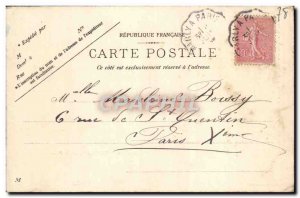 RÉPUBLIQUE FRANÇAISE
CARTE POSTALE
Ce côté est exclusivement réservé à l'adresse.
Expédié par
M
Rue
Nº
L'inscription du nom et de l'adresse de l'expéditeur
est facultative.
A PARIS
Melle Marghane Boissy
6 rue de St Quentin
Paris Xème